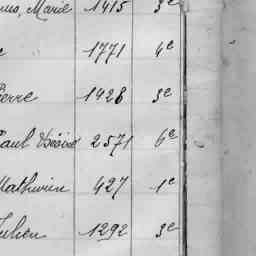 Marie 1415 3e
1771 4e
Pierre 1428 3e
Paul Désiré 2571 6e
Mathurin 427 1e
Julien 1292 3e